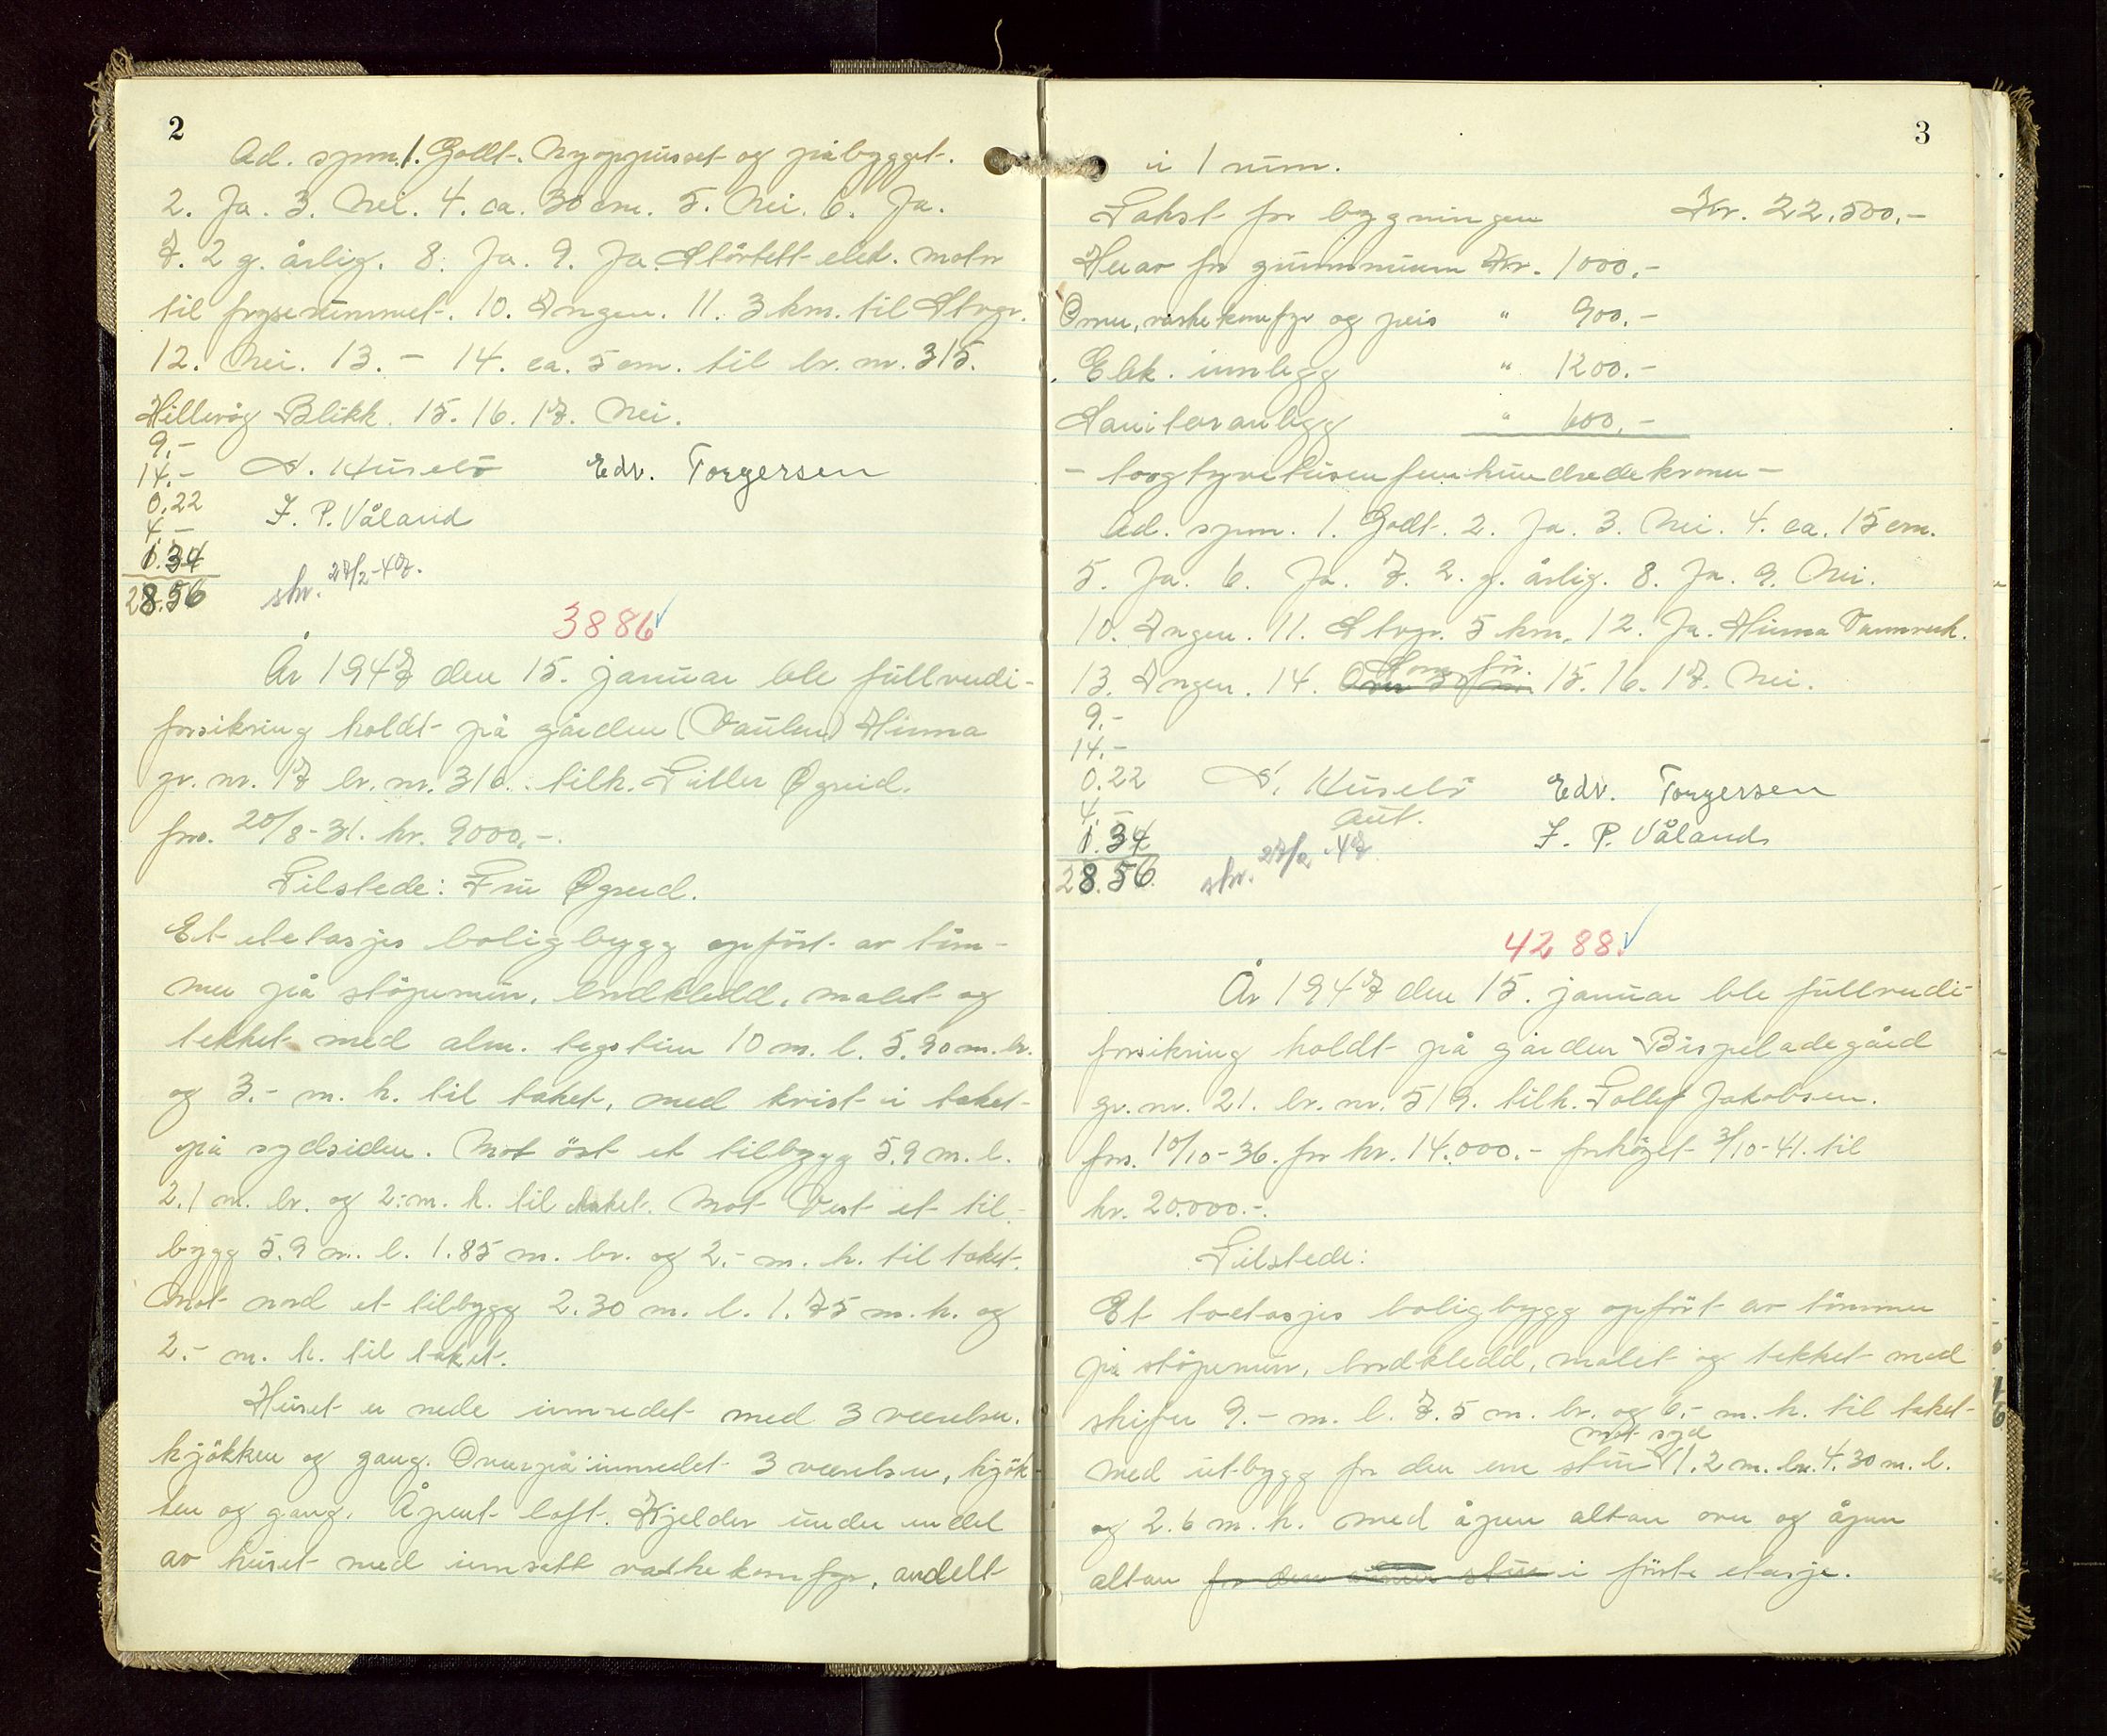 2
Ad. spm. 1. Godt. Nyoppusset og påbygget.
2. Ja. 3. Nei. 4. ca. 30 cm. 5. Nei. 6. Ja.
7. 2 g. årlig. 8. Ja. 9. Ja. Støvtett elek. motor
til fryserummet. 10. Ingen. 11. 3 km. til Stvgr.
12. Nei. 13. - 14. ca. 5 cm. til br. nr. 315.
Hillevåg Blikk. 15. 16. 17. Nei.
9,-
14.- S. Kusele Edv. Torgersen
0.22 F. P. Våland
4.-
1.34
28.56 skr. 27/2-47.
3886
År 1947 den 15. januar ble fullverdi-
forsikring holdt på gården (Vaulen) Hinna
gr. nr. 17 br. nr. 316. tilh. Øgreid.
fors. 20/8-31. kr. 9000,-.
Tilstede: Fru Øgreid.
Et etetasjes boligbygg opført av töm-
mer på støpemur, bordkledd, malet og
tekket med alm. tegstein 10 m. l. 5.90 m. br.
og 3.- m. h. til taket, med kvist i taket
på sydsiden. Mot öst et tilbygg 5.9 m. l.
2.1 m. br. og 2.- m. h. til taket. Mot Vest et til-
bygg 5.9 m. l. 1.85 m. br. og 2.- m. h. til taket.
Mot nord et tilbygg 2.30 m. l. 1.75 m. h. og
2.- m. h. til taket.
Huset er nede innredet med 3 værelser,
kjökken og gang. Ovenpå innredet 3 værelser, kjök-
ken og gang. Åpent loft. Kjelder under en del
av huset med innsatt vaskekomfyr, avdelt
3
i 1 rum.
Takst for bygningen Kr. 22.500.-
Herav for grunnmuren Kr. 1000.-
Ovner, vaskekomfyr og peis " 900.-
Elek. innlegg " 1200.-
Saniteranlegg " 600.-
- toogtyvetusenfemhundredekroner -
Ad. spm. 1. Godt. 2. Ja. 3. Nei. 4. ca. 15 cm.
5. Ja. 6. Ja. 7. 2. g. årlig. 8. Ja. 9. Nei.
10. Ingen. 11. Stvgr. 5 km. 12. Ja. Hinna Vannverk.
13. Ingen. 14. Som før. 15. 16. 17. Nei.
9.-
14.-
0.22 S. Kusele Edv. Torgersen
4.- aut. F. P. Våland
1.34
28.56. skr. 27/2-47.
4288.
År 1947 den 15. januar ble fullverdi-
forsikring holdt på gården Bispeladegård
gr. nr. 21. br. nr. 519. tilh. Tollef Jakobsen.
fors. 10/10-36. for kr. 14.000.- forhöjet 3/10-41. til
kr. 20.000.-.
Tilstede:
Et toetasjes boligbygg opført av tömmer
på støpemur, bordkledd, malet og tekket med
skifer 9.- m. l. 7.5 m. br. og 6.- m. h. til taket
med utbygg for den ene stue mot syd 1.2 m. br. 4.30 m. l.
og 2.6 m. h. med åpen altan over og åpen
altan for den stue i første etasje.